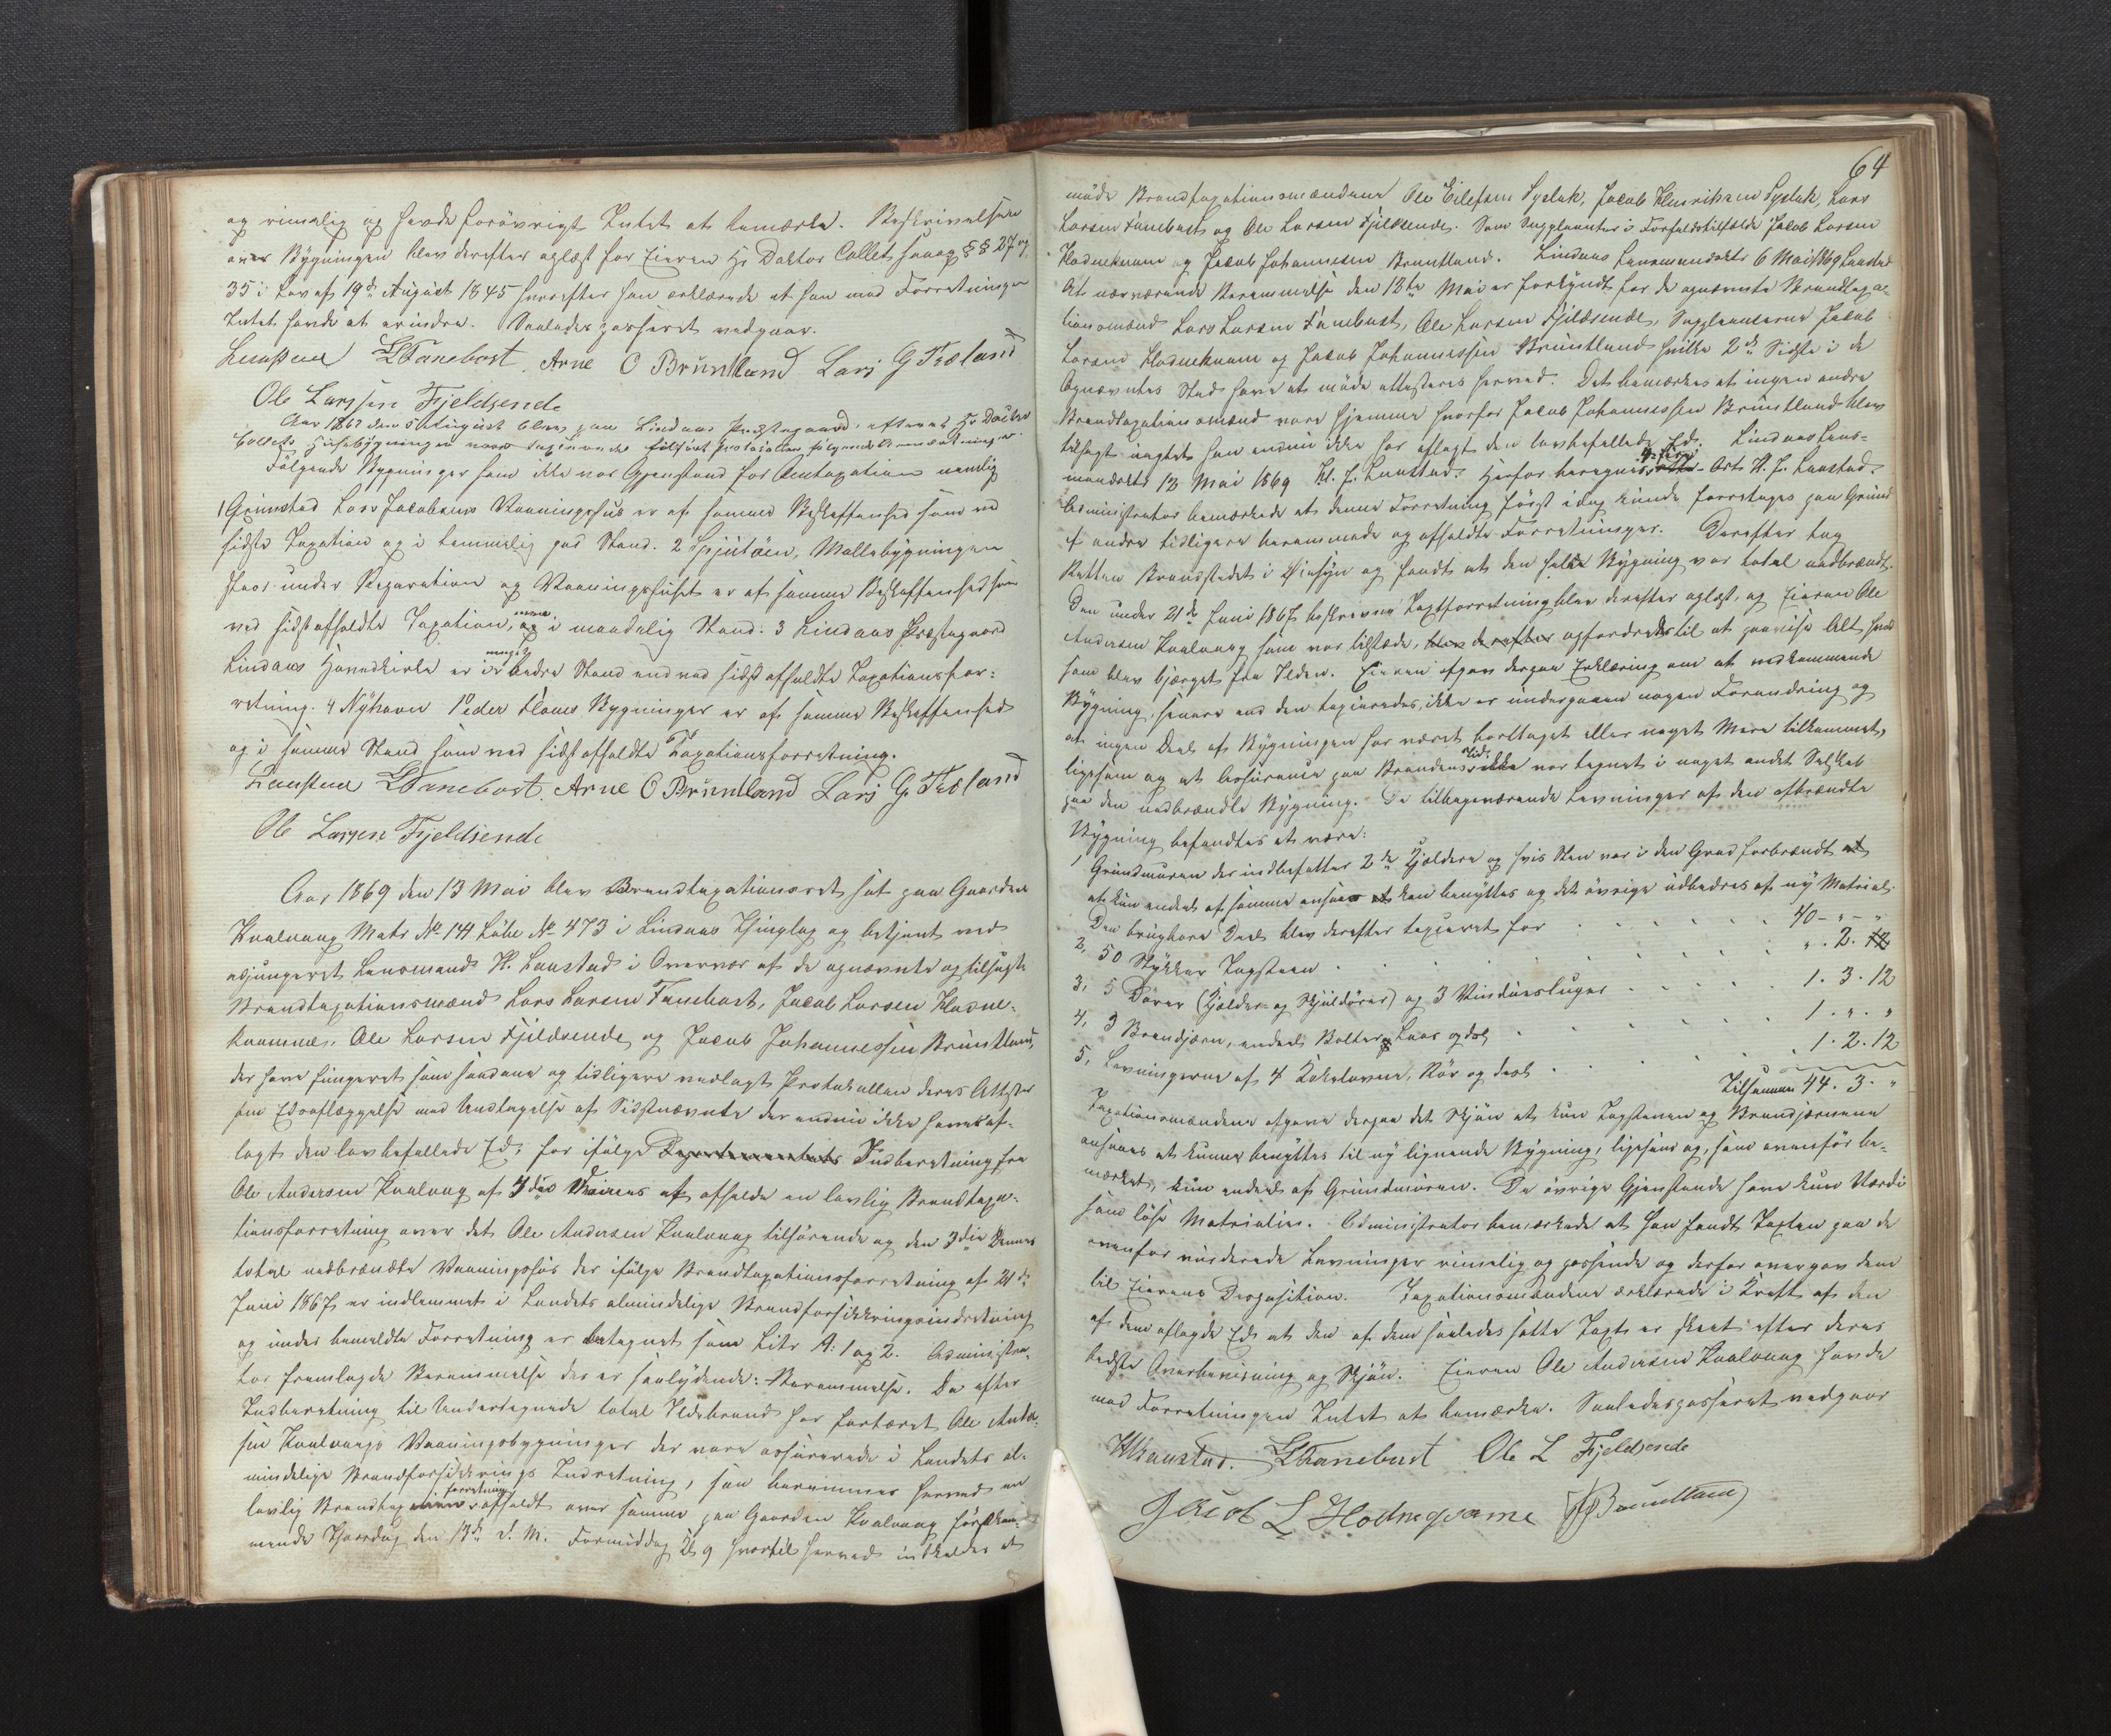 og rimelig og havde forövrigt Intet at bemærke. Beskrivelsen
over Bygningen blev derefter oplæst for Eieren Hr Doktor Collet samt §§ 27 og
35 i Lov af 19de August 1845 hvorefter han erklærede at han mod Forretningen
Intet havde at erindre. Saaledes passeret vedgaar.
L Tanebost. Arne O Brüntland Lars G Træland
Ole Larssen Fjeldsende
Aar 1867 den August blev paa Lindaas Præstegaard, efterat Hr Doctor
Collets Huusebygninger vare taxerede tilført Protocollen følgende Bemærkninger
Fölgende Bygninger som ikke var Gjenstand for Omtaxation nemlig
1 Grimstad Lars Jacobsens Vaaningshuus er af samme Beskaffenhed som ved
sidste Taxation og i temmelig god Stand. 2 Spjutöen, Møllebygningen
staar under Reparation og Vaaningshuset er af samme Beskaffenhed som
ved sidst afholdte Taxation, men i maadelig Stand. 3 Lindaas Præstegaard
Lindaas Hovedkirke er i meget bedre Stand end ved sidst afholdte Taxationsfor-
retning. 4 Nÿhavn Peder Floms Bygninger er af samme Beskaffenhed
og i samme Stand som ved sidst afholdte Taxationsforretning.
L Tanebost. Arne O Brüntland Lars G Træland
Ole Larssen Fjeldsende
Aar 1869 den 13 Mai blev Brandtaxationsret sat paa Gaarden
Kvalvaag Matr No 141 Löbe No 473 i Lindaas Thinglag og betjent ved
adjungeret Lensmand H. Lanstad i Overvær af de opnævnte og tilsagte
Brandtaxationsmænd Lars Larsen Fanebost, Jacob Larsen Hodne-
kvamme, Ole Larsen Fjeldsende og Jacob Johannessen Brüntland,
der have fungeret som saadanne og tidligere vedlagt Protokollen deres Attester
om Edsaflæggelse med Undtagelse af Sidstnævnte der endnu ikke haver af-
lagt den lovbefallede Ed, for ifölge Departementets Indberetning fra
Ole Andersen Kvalvaag af 3die d. M. at afholde en lovlig Brandtaxa-
tionsforretning over det Ole Andersen Kvalvaag tilhørende og den 3die Dennes
total nedbrændte Vaaningshuus der ifölge Brandtaxationsforretning af 21de
Juni 1867 er indlemmet i Landets almindelige Brandforsikkringsindretning
og under bemeldte Forretning er betegnet som Litr A: 1 og 2. Administra-
tor fremlagde Berammelse der er saalydende: Berammelse. Da efter
Indberetning til Undertegnede total Ildebrand har fortæret Ole Ander-
sen Kvalvaags Vaaningsbygninger der vare assurerede i Landets al-
mindelige Brandforsikkrings Indretning, saa berammes herved en
lovlig Brandtaxationsforretning afholdt over samme paa Gaarden Kvalvaag førstkom-
mende Thorsdag den 13de d. M. Formiddag Kl 9 hvortil herved indkaldes at
64
möde Brandtaxationsmændene Ole Eilefsen Syslak, Jacob Henriksen Syslak, Lars
Larsen Fanebost og Ole Larsen Fjeldsende. Som Supplenter i Forfaldstilfælde Jacob Larsen
Hodnekvam og Jacob Johannesen Brüntland. Lindaas Lensmandskt 6 Mai 1869 Lanstad
At nærværende Berammelse den 12te Mai er forkyndt for de opnævnte Brandtaxa-
tionsmænd Lars Larsen Fanebost, Ole Larsen Fjeldsende, Supplenterne Jacob
Larsen Hodnekvam og Jacob Johannessen Brüntland hvilke 2de Sidste i de
Opnævntes Sted have at möde attesteres herved. Det bemærkes at ingen andre
Brandtaxationsmænd vare hjemme hvorfor Jacob Johannessen Brüntland blev
tilsagt uagtet han endnu ikke har aflagt den lovbefallede Ed. Lindaas Lens-
mandskt 12 Mai 1869 H. J. Lanstad. Herfor beregnes Ort H. J. Lanstad.
Administrator bemærkede at denne Forretning först idag kunde foretages paa Grund
af andre tidligere berammede og afholdte Forretninger. Derefter tog
Retten Brandstedet i Öiesyn og fandt at den hele Bygning var total nedbrændt.
Den under 21de Juni 1867 beskrevne Taxtforretning blev derefter oplæst, og Eieren Ole
Andersen Kvalvaag som var tilstæde, blev derefter opfordredes til at paavise Alt hvad
som blev bjærget fra Ilden. Eieren afgav derpaa Erklæring om at vedkommende
Bygning, senere end den taxeredes, ikke er undergaaen nogen Forandring og
at ingen Deel af Bygningen har været borttaget eller noget Mere tilkommet,
ligesom og at Assurance paa Brandens Tid ikke var tegnet i noget andet Selskab
paa den nedbrændte Bygning. De tilbageværende Levninger af den afbrændte
Bygning befandtes at være:
1 Grundmuren der indbefatter 2de Kjældere og hvis Sten var i den Grad forbrændt at
at kun endeel af samme ansees at kan benyttes og det övrige udbedres af ny Material.
Den brugbare Deel blev derefter taxeret for . . . . . 40 - " - "
2, 50 Stykker Tagsteen . . . . . " . 2. 12
3, 5 Dörer (Kjælder- og Skjuldörer) og 3 Vinduesluger . . . . 1. 3. 12
4, 3 Brandjærn, endeel Bolter, Laas og dsl . . . . . 1. " . "
5, Levningerne af 4 Kakelovne, Rör og desl . . . . 1. 2. 12
Tilsammen 44. 3. "
Taxationsmændene afgave derpaa det Skjön at kun Tagstenen og Brandjærnene
ansaaes at kunne benyttes til ny lignende Bygning, ligesom og, som ovenfor be-
mærket, kun endeel af Grundmuren. De övrige Gjenstande have kun Værdi
som löse Materialier. Administrator bemærkede at han fandt Taxten paa de
ovenfor vurderede Levninger rimelig og passende og derfor overgav dem
til Eierens Disposition. Taxationsmændene erklærede i Kraft af den
af dem aflagde Ed at den af dem saaledes satte Taxt er skeet efter deres
bedste Overbevisning og Skjön. Eieren Ole Andersen Kvalvaag havde
mod Forretningen Intet at bemærke. Saaledes passeret vedgaar
HLanstad. LLFanebust Ole L Fjeldsende
Jacob L Hodneqvame JJBrundtland